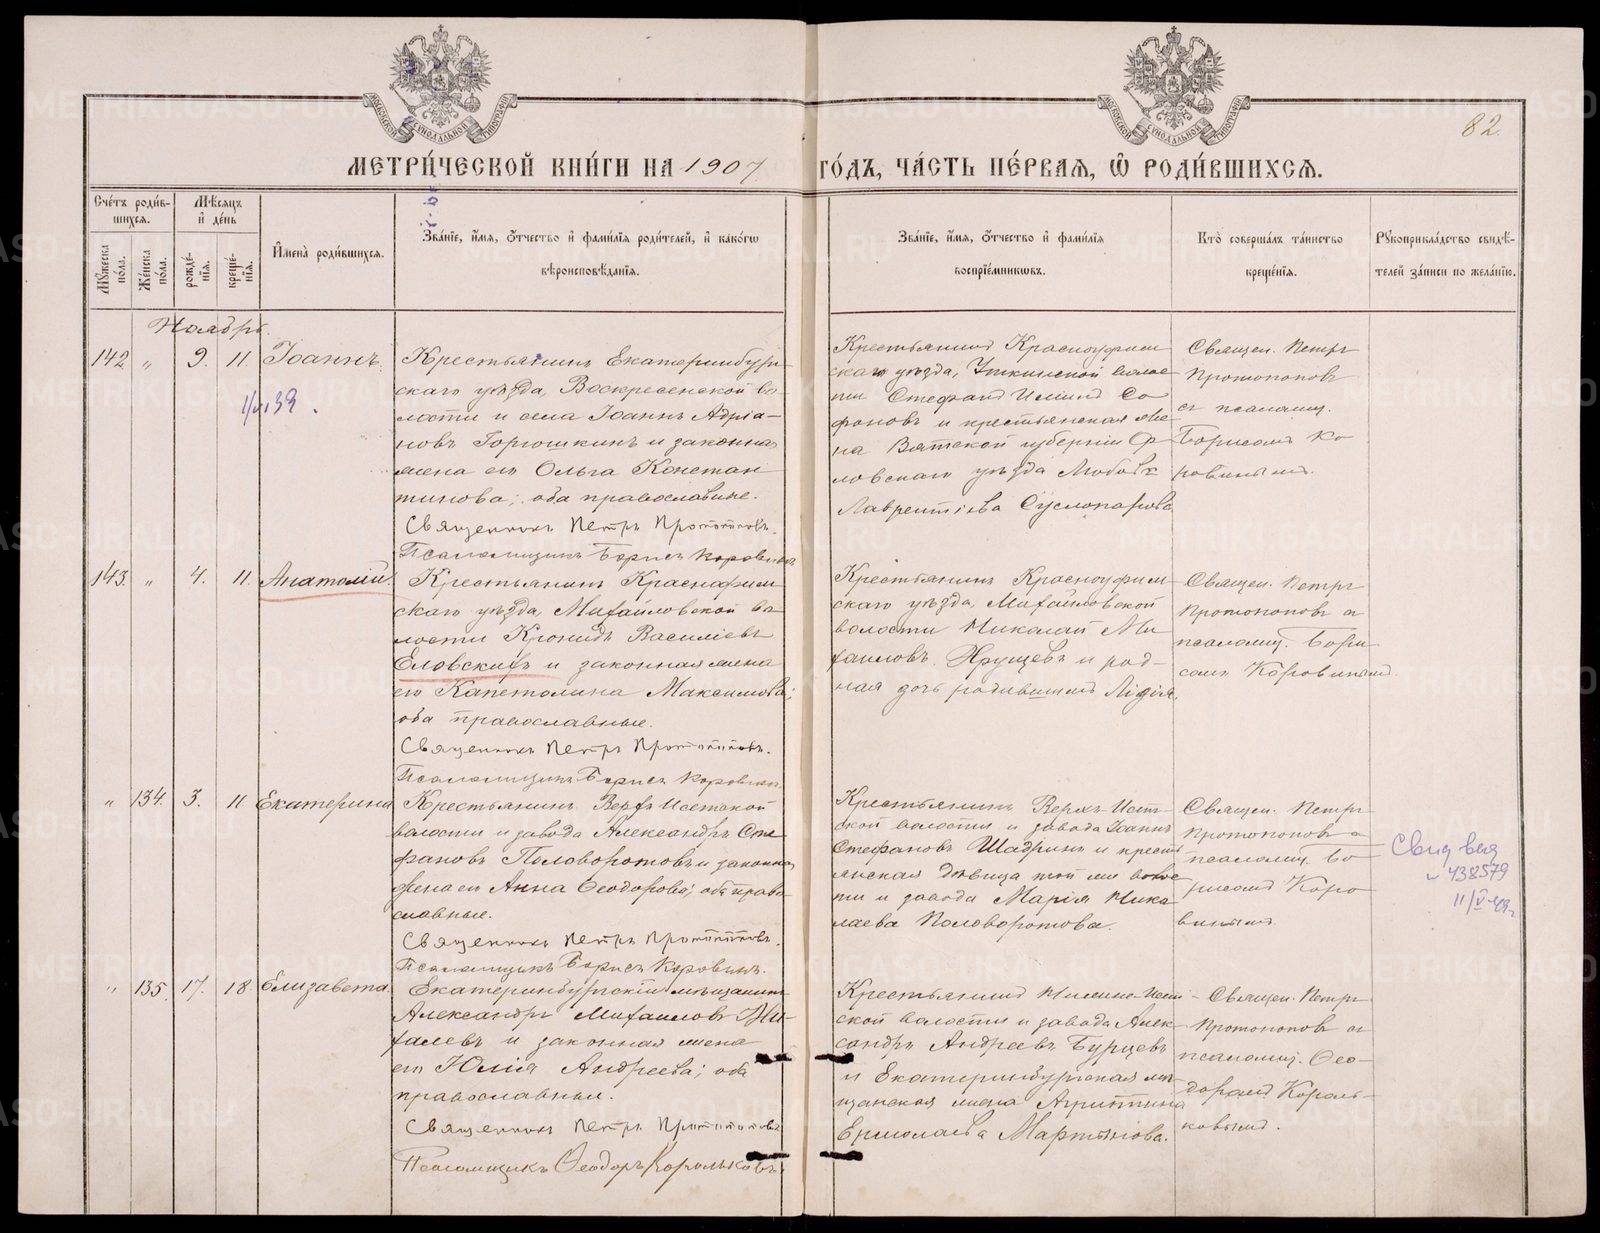 82.
МОСКОВСКОЙ СУНОДАЛЬНОЙ ТИПОГРАФІИ
МОСКОВСКОЙ СУНОДАЛЬНОЙ ТИПОГРАФІИ
МЕТРИ́ЧЕСКОЙ КНИ́ГИ НА 1907 ГО́ДЪ, ЧА́СТЬ ПЕ́РВАЯ, Ѡ РОДИ́ВШИХСЯ.
Сче́тъ роди́в-
шихся.
Мѣ́сяцъ
и҆ де́нь
Мꙋ́жеска по́ла.
Же́нска по́ла.
рожде́-
нїѧ.
креще́-
нїѧ.
И҆мена̀ роди́вшихся.
Зва́нїе, и҆́мѧ, ѻ҆́тчество и҆ фами́лїѧ роди́телей, и҆ како́гѡ
вѣроисповѣ́данїѧ.
Зва́нїе, и҆́мѧ, ѻ҆́тчество и҆ фами́лїѧ
воспрїе́мникѡвъ.
Кто̀ соверша́лъ та́инство
креще́нїѧ.
Рꙋкоприкла́дство свидѣ́-
телей за́писи по жела́нїю.
Ноябрь.
142 „ 9. 11. Іоаннъ.
Крестьянинъ Екатеринбург-
скаго уѣзда, Воскресенской во-
лости и села Іоаннъ Адріа-
новъ Горюшкинъ и законная
жена его Ольга Констан
тинова; оба православные.
Священникъ Петръ Протопоповъ.
Псаломщикъ Борисъ Коровинъ
Крестьянинъ Красноуфим
скаго уѣзда, Уткинской волос
ти Стефанъ Со
фоновъ и крестьянская же
на Вятской губерніи Ор
ловскаго уѣзда Любовь
Лаврентіева Суслопарова
Священ. Петръ
Протопоповъ
съ псаломщ.
Борисомъ Ко
ровинымъ.
143. „ 4. 11. Анатолій.
Крестьянинъ Краснофим
скаго уѣзда, Михайловской во-
лости Кронидъ Василіевъ
Еловскихъ и законная жена
его Капетолина Максимова;
оба православные.
Священникъ Петръ Протопоповъ.
Псаломщикъ Борисъ Коровинъ.
Крестьянинъ Красноуфим
скаго уѣзда, Михайловской
волости Николай Ми
хаиловъ Хрущевъ и род-
ная дочь родившимъ Лидія.
Священ. Петръ
Протопоповъ съ
псаломщ. Бори
сомъ Коровинымъ.
„ 134. 3. 11 Екатерина
Крестьянинъ Верхъ Исетской
волости и завода Александръ Сте
фановъ Половоротовъ и законная
жена его Анна Ѳеодорова; оба право
славные.
Священникъ Петръ Протопоповъ.
Псаломщикъ Борисъ Коровинъ.
Крестьянинъ Верхъ-Исет-
ской волости и завода Іоаннъ
Стефановъ Шадринъ и кресть
янская дѣвица той же волос
ти и завода Марія Нико
лаева Половоротова.
Священ. Петръ
Протопоповъ съ
псаломщ. Бо-
рисомъ Коро
винымъ
438579
„ 135. 17. 18 Елизавета.
Екатеринбургскій мѣщанинъ
Александръ Михаиловъ Жи-
галевъ и законная жена
его Юлія Андреева; оба
православные.
Священникъ Петръ Протопоповъ
Псаломщикъ Ѳеодоръ Корольковъ.
Крестьянинъ Нижне-Исет
ской волости и завода Алек-
сандръ Андреевъ Бурцевъ
и Екатеринбургская мѣ-
щанская жена Агриппина
Ермолаева Мартынова.
Священ. Петръ
Протопоповъ съ
псаломщ. Ѳео-
доромъ Король-
ковымъ.